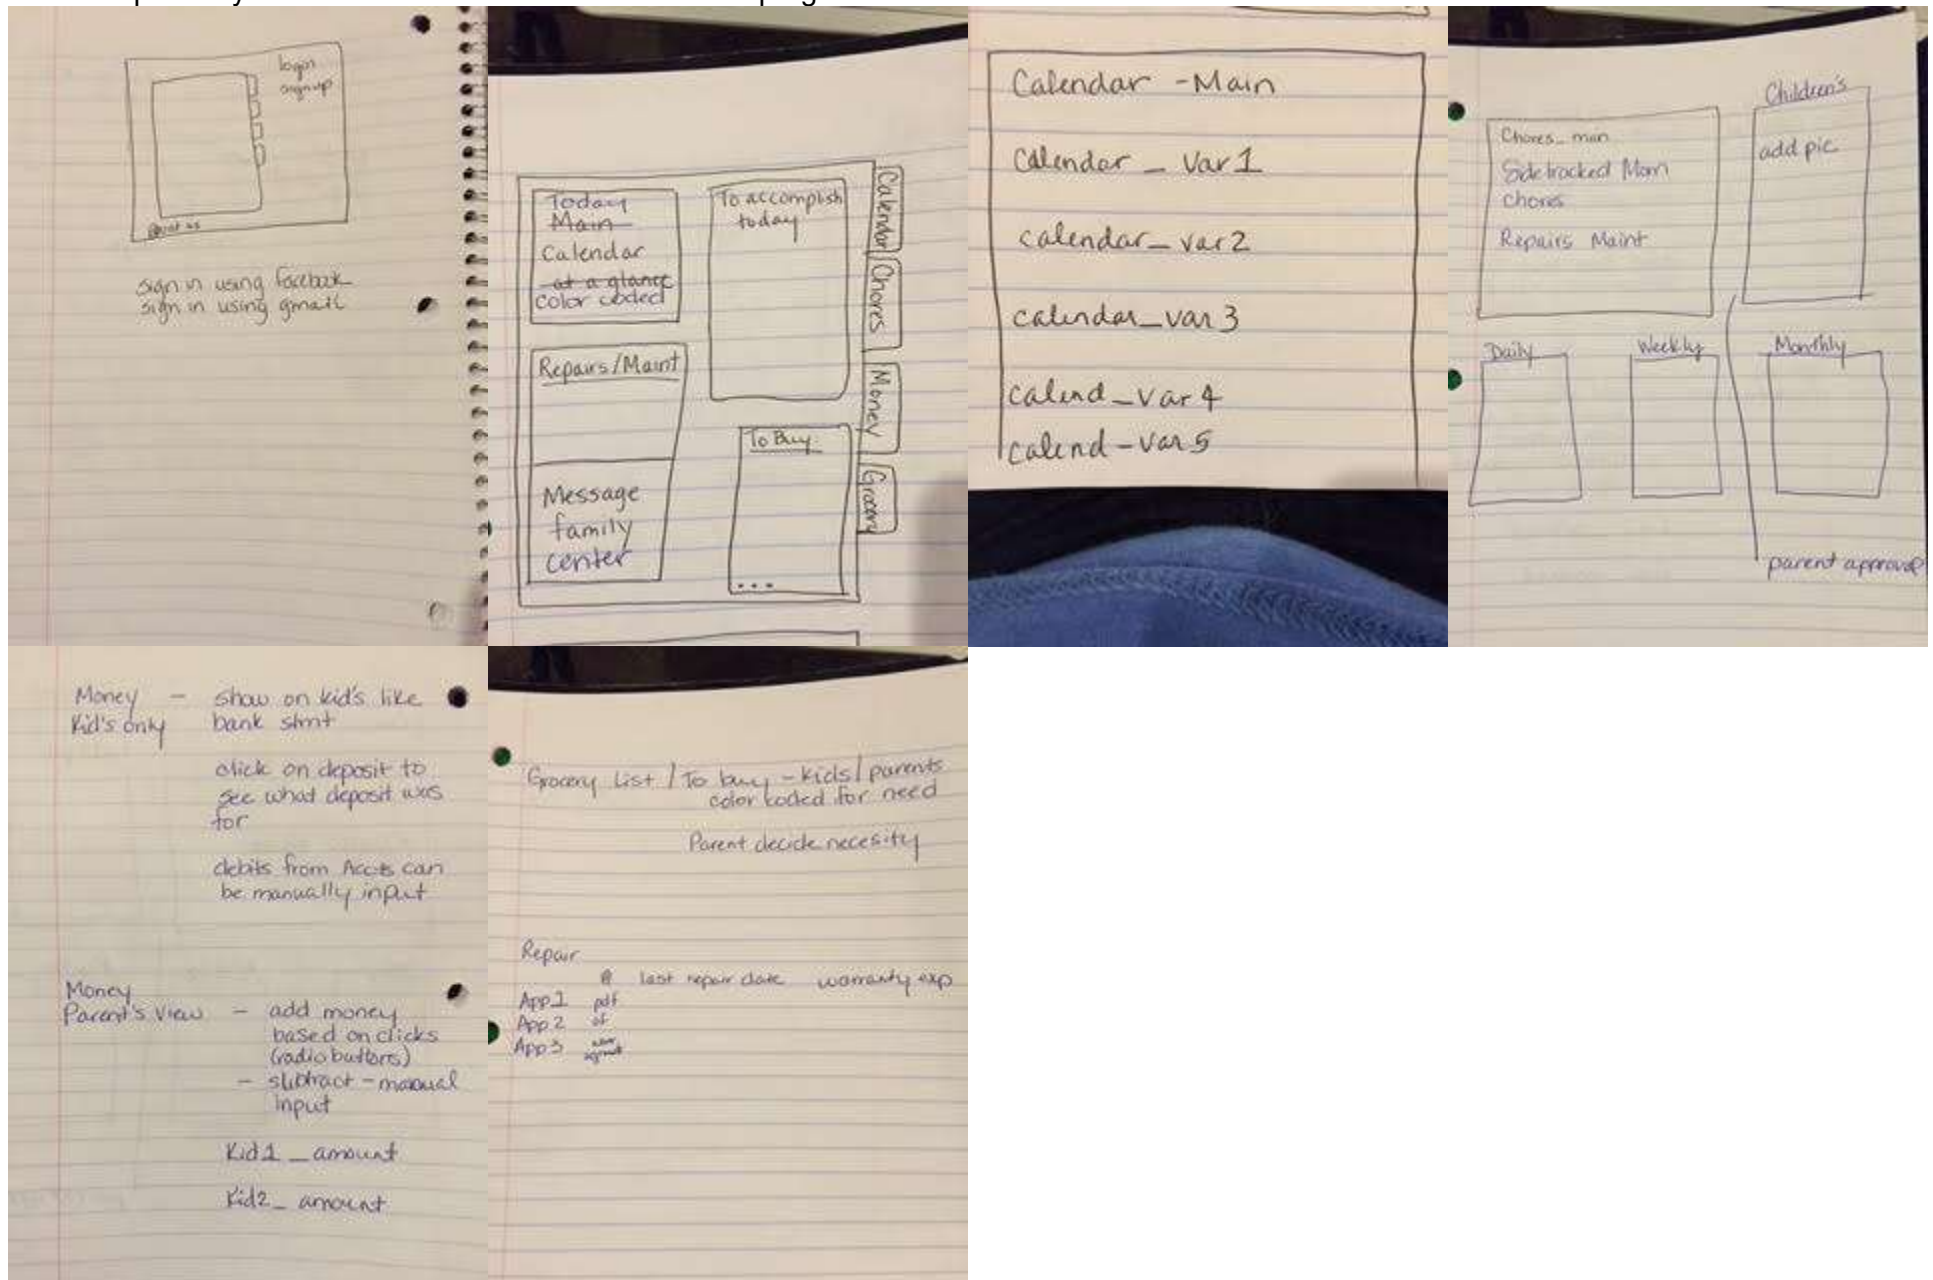 login
signup
sign in using facebook
sign in using gmail
Today
Main
Calendar
at a glance
color coded
To accomplish
today
Repairs/Maint
To Buy
Message
family
center
...
Calendar
Chores
Money
Grocery
Calendar - Main
Calendar _ Var 1
calendar _ var 2
calendar _ var 3
calend _ var 4
calend - var 5
Chores_main
Sidetracked Mom
chores
Repairs Maint
Children's
add pic
Daily
Weekly
Monthly
parent approval
Money - show on kid's like
Kid's only bank stmt
click on deposit to
see what deposit was
for
debits from Accts can
be manually input
Money
Parent's View - add money
based on clicks
(radio buttons)
- subtract - manual
input
Kid1 _ amount
Kid2 _ amount
Grocery List / To buy - kids / parents
color coded for need
Parent decide necesity
Repair
last repair date warranty exp
App 1 pdf
App 2 of
App 3